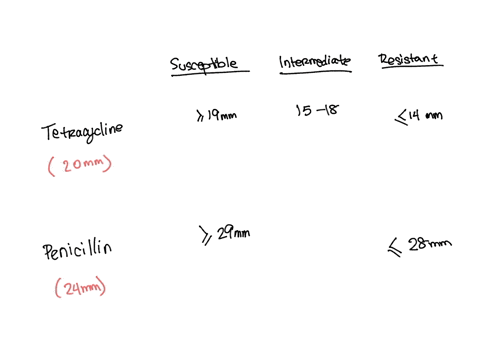 Susceptible Intermediate Resistant
Tetracycline ≥19mm 15-18 ≤14 mm
(20mm)
Penicillin ≥29mm ≤28mm
(24mm)